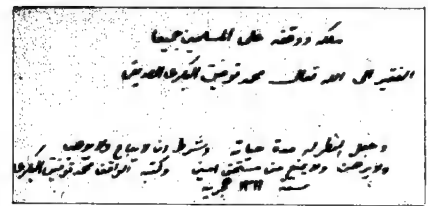 ملكه ووقفه على المسلمين جميعا
الفقير الى الله تعالى محمد توفيق البكرى الصديقى
وجعل النظر له مدة حياته وشرط ان لا يباع ولا يوهب
ولا يرهن ولا يمنع من مستحق امين وكتبه الواقف محمد توفيق البكرى
سنة هجرية